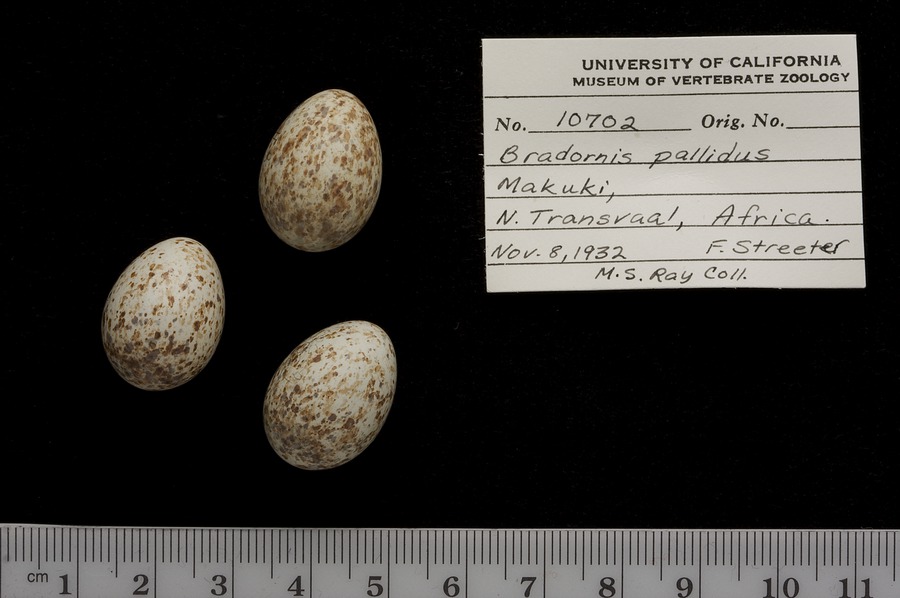 UNIVERSITY OF CALIFORNIA
MUSEUM OF VERTEBRATE ZOOLOGY
No. 10702 Orig. No.
Bradornis pallidus
Makuki,
N. Transvaal, Africa.
Nov. 8, 1932 F. Streeter
M.S. Ray Coll.
cm 1 2 3 4 5 6 7 8 9 10 11